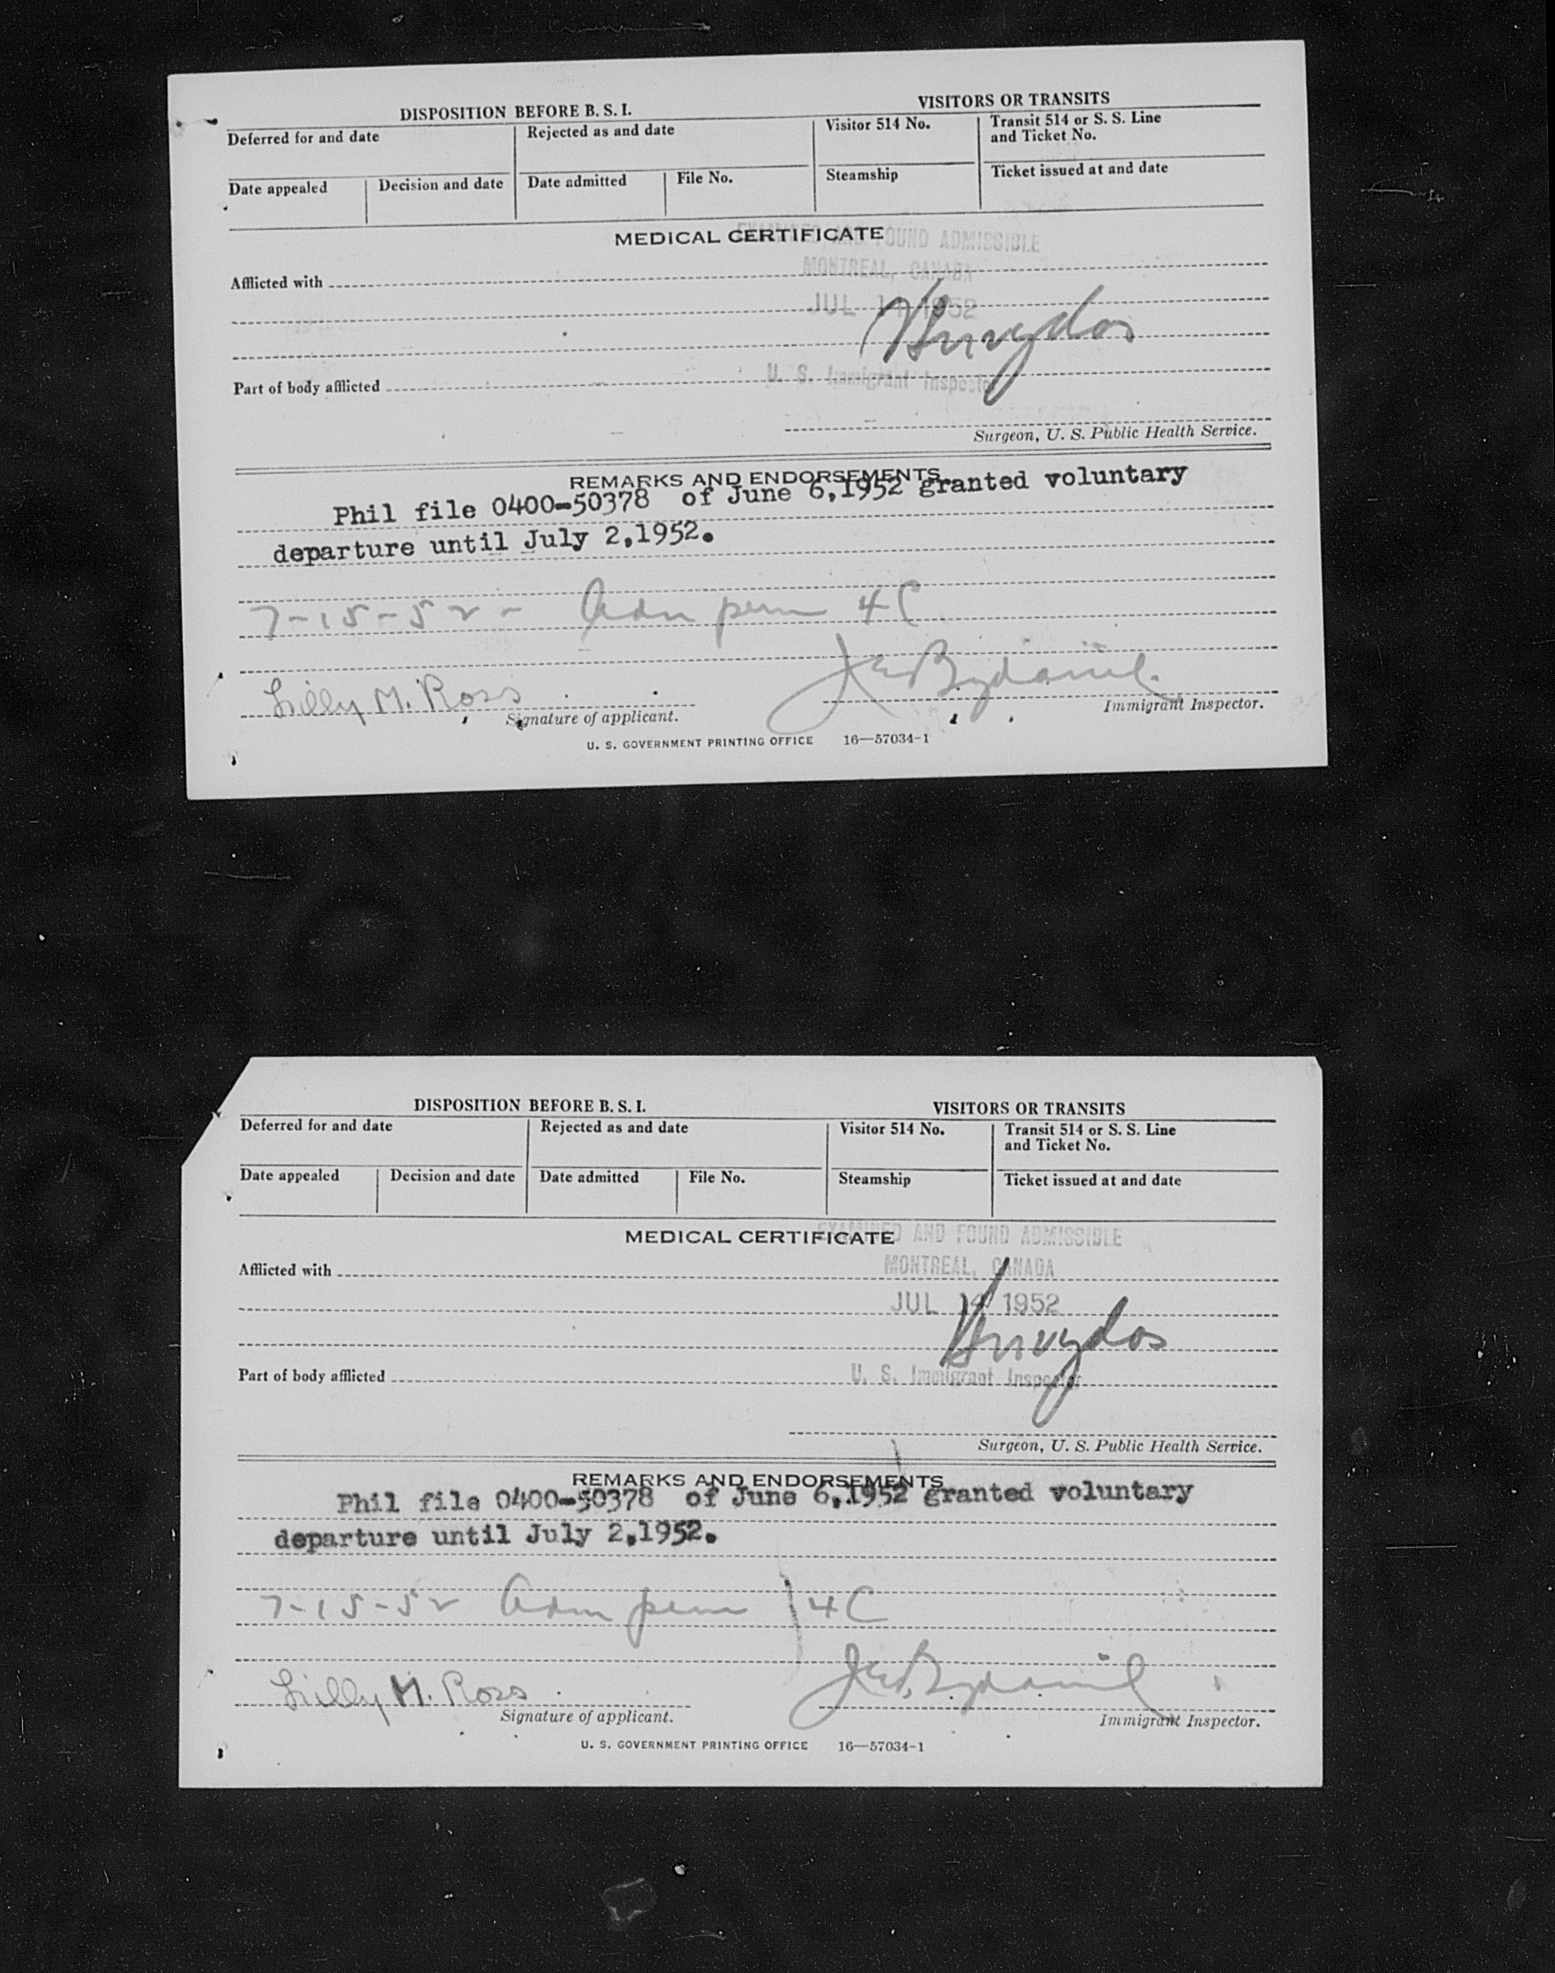 DISPOSITION BEFORE B. S. I.
VISITORS OR TRANSITS
Deferred for and date
Rejected as and date
Visitor 514 No.
Transit 514 or S. S. Line
and Ticket No.
Date appealed
Decision and date
Date admitted
File No.
Steamship
Ticket issued at and date
MEDICAL CERTIFICATE
EXAMINED AND FOUND ADMISSIBLE
MONTREAL, CANADA
Afflicted with
JUL 14 1952
Part of body afflicted
U. S. Immigrant Inspector
Surgeon, U. S. Public Health Service.
REMARKS AND ENDORSEMENTS
Phil file 0400-50378 of June 6,1952 granted voluntary
departure until July 2,1952.
7-15-52 - Adm perm 4C
Lilly M. Ross
Signature of applicant.
Immigrant Inspector.
U. S. GOVERNMENT PRINTING OFFICE 16—57034-1
DISPOSITION BEFORE B. S. I.
VISITORS OR TRANSITS
Deferred for and date
Rejected as and date
Visitor 514 No.
Transit 514 or S. S. Line
and Ticket No.
Date appealed
Decision and date
Date admitted
File No.
Steamship
Ticket issued at and date
MEDICAL CERTIFICATE
EXAMINED AND FOUND ADMISSIBLE
MONTREAL, CANADA
Afflicted with
JUL 14 1952
Part of body afflicted
U. S. Immigrant Inspector
Surgeon, U. S. Public Health Service.
REMARKS AND ENDORSEMENTS
Phil file 0400-50378 of June 6,1952 granted voluntary
departure until July 2,1952.
7-15-52 Adm perm 4C
Lilly M. Ross
Signature of applicant.
Immigrant Inspector.
U. S. GOVERNMENT PRINTING OFFICE 16—57034-1